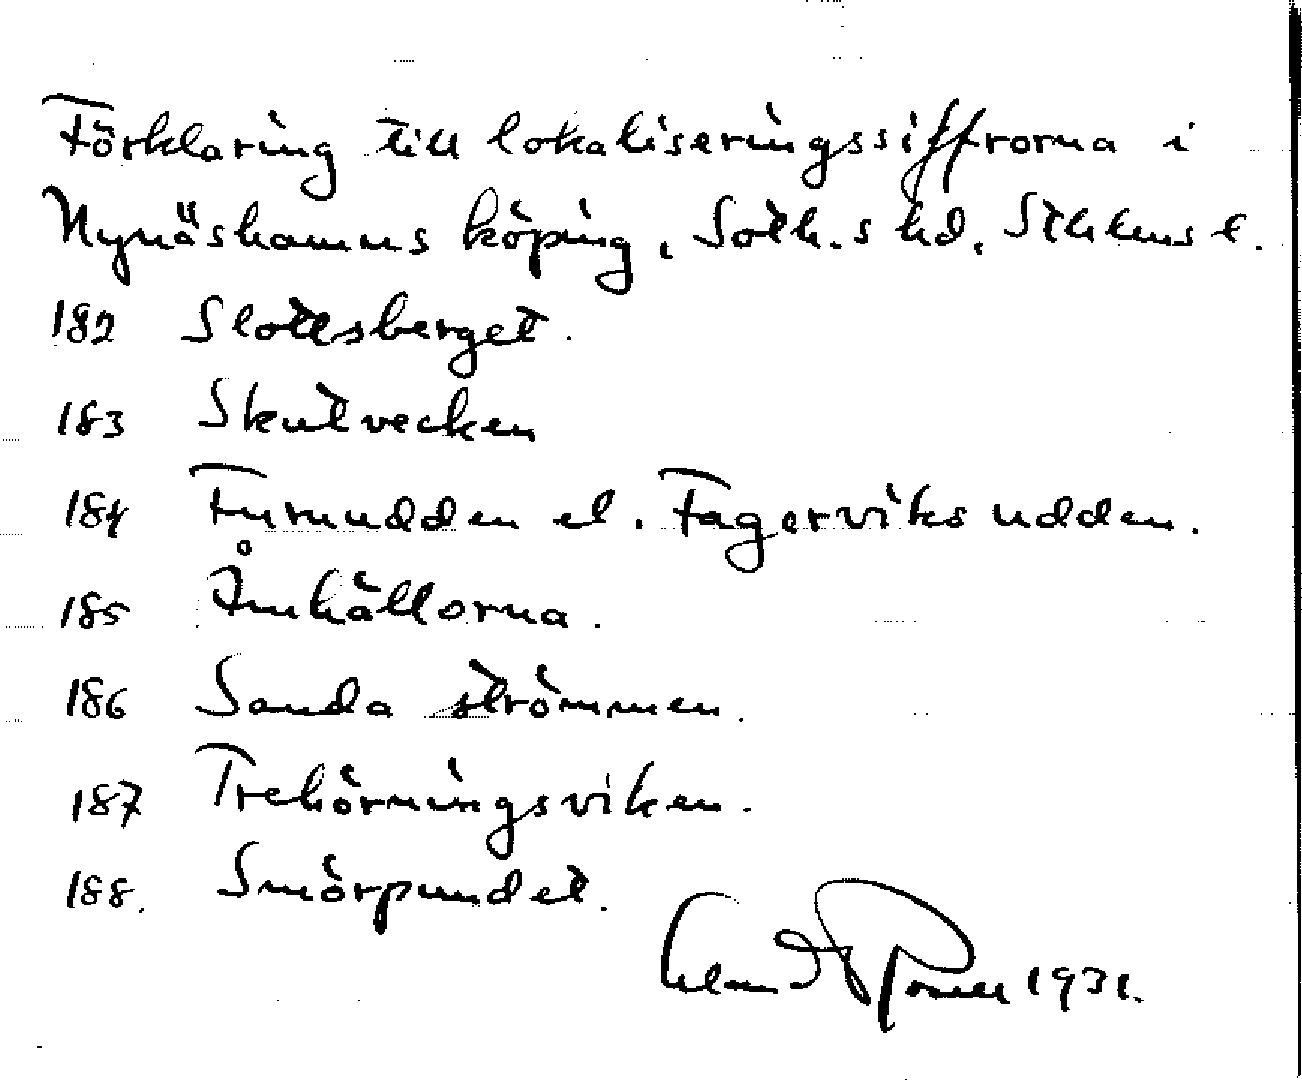 Förklaring till lokaliseringssiffrorna i
Nynäshamns köping, Soth.s hd, Sthlms l.
182 Slottsberget.
183 Skutvecken
184 Furuudden el. Fagerviks udden.
185 Ånhällorna.
186 Sanda strömmen.
187 Trehörningsviken.
188. Smörpundet.
1931.